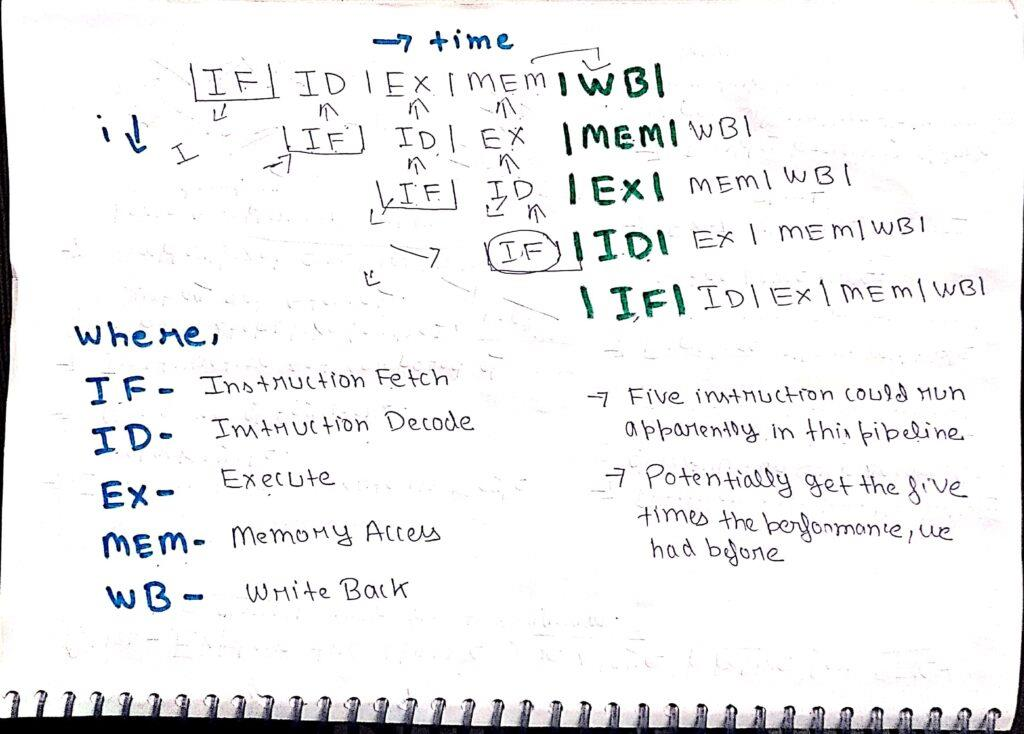 → time
|IF| ID | EX | MEM |WB|
i ↓ I |IF| ID | EX |MEM| WB|
|IF| ID |EX| MEM| WB|
→ IF |ID| EX | MEM| WB|
|IF| ID| EX| MEM| WB|
Where,
IF- Instruction Fetch
ID- Intruction Decode
EX- Execute
MEM- Memory Access
WB- Write Back
→ Five instruction could run
apparently in this pibeline
→ Potentially get the five
times the berformance, we
had before